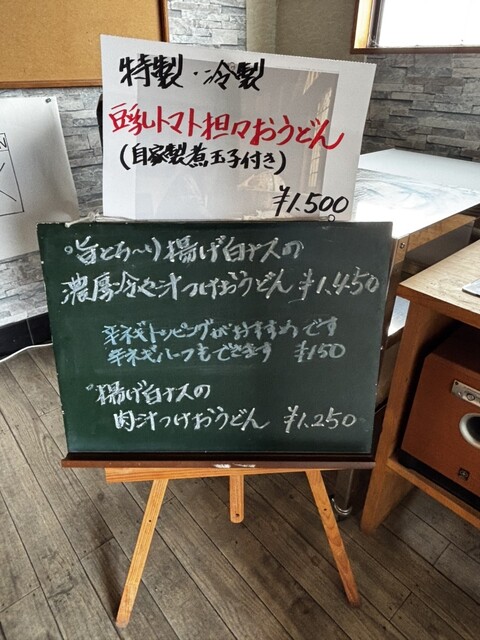 特製・冷製
豆乳トマト担々おうどん
(自家製煮玉子付き)
¥1.500
旨とろ〜り揚げ白ナスの
濃厚冷や汁つけおうどん ¥1.450
辛ネギトッピングがおすすめです
辛ネギハーフもできます ¥150
揚げ白ナスの
肉汁つけおうどん ¥1.250